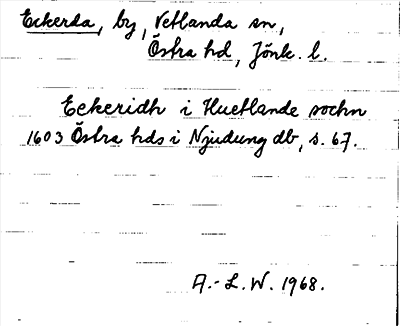 Eckerda, by, Vetlanda sn,
Östra hd, Jönk. l.
Eckeridh i Huetlande sochn
1603 Östra hds i Njudung db, s. 67.
A.-L.W. 1968.